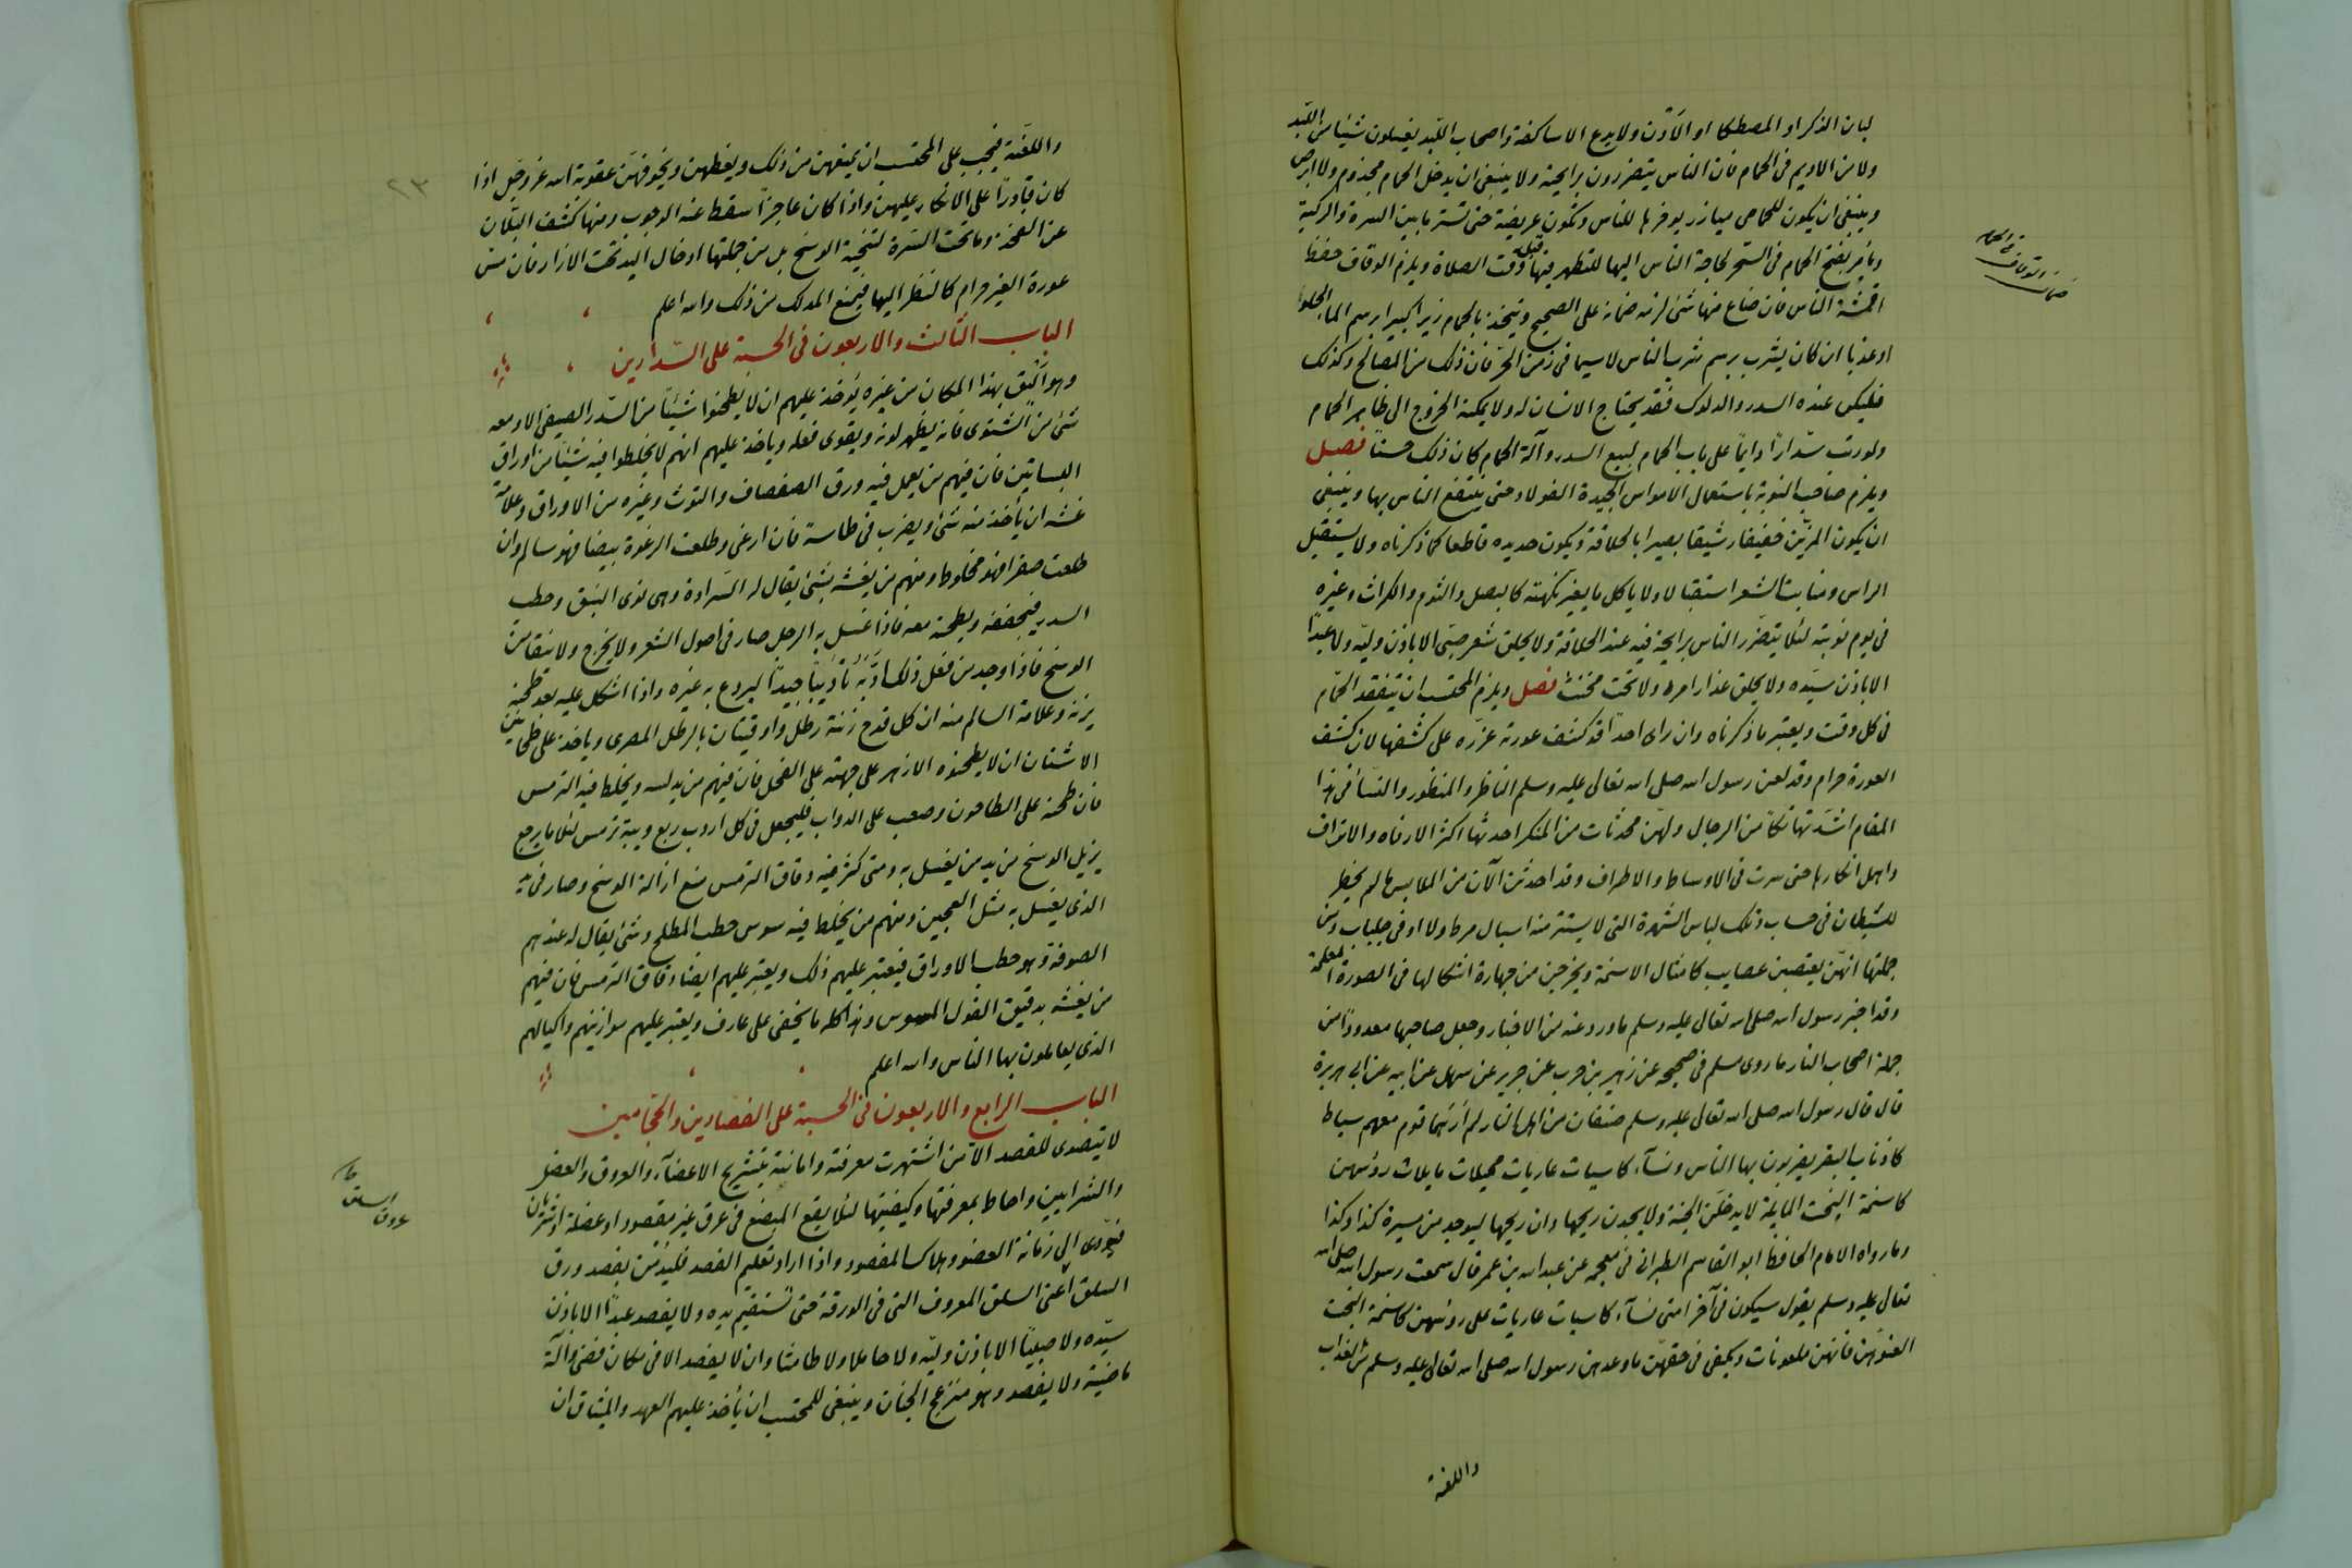 لبان الذكر او المصطكا او اللاذن ولا يدع الاساكفة واصحاب اللبد يغسلون شيئا من اللبد
ولا من الاديم فى الحمام فان الناس يتضررون برايحته ولا ينبغى ان يدخل الحمام مجذوم ولا ابرص
وينبغى ان يكون للحمامى ميازر يوفرها للناس وتكون عريضة حتى تستر ما بين السرة والركبة
ويأمر بفتح الحمام فى السحر لحاجة الناس اليها للتطهر فيها قبل وقت الصلاة ويلزم الوقاف حفظ
اقمشة الناس فان ضاع منها شئ لزمه ضمانه على الصحيح ويتخذ بالحمام زيرا كبيرا برسم الما الحلو
او عذبا ان كان يشرب برسم شرب الناس لاسيما فى زمن الحر فان ذلك من المصالح وكذلك
فليكن عنده السدر والدلوك فقد يحتاج الانسان له ولا يمكنه الخروج الى ظاهر الحمام
ولو رتب سدارًا دايماً على باب الحمام لبيع السدر وآلة الحمام كان ذلك حسنًا فصل
ويلزم صاحب النوبة باستعمال الامواس الجيدة الفولاد حتى ينتفع الناس بها وينبغى
ان يكون المزين خفيفا رشيقا بصيرا بالحلاقة ويكون حديده قاطعا كما ذكرناه ولا يستقبل
الراس ومنابت الشعر استقبالا ولا ياكل ما يغير نكهته كالبصل والثوم والكراث وغيره
فى يوم نوبته لئلا يتضرر الناس برايحة فيه عند الحلاقة ولا يحلق شعر صبى الا باذن وليه ولا عبدًا
الا باذن سيده ولا يحلق عذار امرد ولا لحية مخنث فصل ويلزم المحتسب ان يتفقد الحمام
فى كل وقت ويعتبر ما ذكرناه وان راى احدًا قد كشف عورته عزره على كشفها لان كشف
العورة حرام وقد لعن رسول الله صلى الله تعالى عليه وسلم الناظر والمنظور والنسآ فى هذا
المقام اشد تهاتكًا من الرجال ولهن محدثات من المنكر احدثها اكثر الارفاه والاتراف
واهل انكارها حتى سرت فى الاوساط والاطراف وقد احدثن الآن من الملابس ما لم يخطر
للشيطان فى حساب وتلك لباس الشهرة التى لا يستتر منه اسبال مرط ولا ادنى جلباب ومن
جملتها انهن يعتصبن عصايب كامثال الاسنمة ويخرجن من جهارة اشكالها فى الصورة المعلمة
وقد اخبر رسول الله صلى الله تعالى عليه وسلم ما ورد عنه من الاخبار وجعل صاحبها معدودًا من
جملة اصحاب النار ما روى مسلم فى صحيحه عن زهير بن حرب عن جرير عن سهل عن ابيه عن ابى هريرة
قال قال رسول الله صلى الله تعالى عليه وسلم صنفان من اهل النار لم ارهما قوم معهم سياط
كاذناب البقر يضربون بها الناس ونسآء كاسيات عاريات مميلات مايلات رؤسهن
كاسنمة البخت المايلة لا يدخلن الجنة ولا يجدن ريحها وان ريحها ليوجد من مسيرة كذا وكذا
وما رواه الامام الحافظ ابو القاسم الطبرانى فى معجمه عن عبد الله بن عمر قال سمعت رسول الله صلى الله
تعالى عليه وسلم يقول سيكون فى آخر امتى نسآء كاسيات عاريات على رؤسهن كاسنمة البخت
العنوهن فانهن ملعونات ويكفى فى حقهن ما وعدهن رسول الله صلى الله تعالى عليه وسلم من العذاب
واللعنة
٢٣
واللعنة فيجب على المحتسب ان يمنعهن من ذلك ويعظهن ويخوفهن عقوبة الله عز وجل اذا
كان قادرًا على الانكار عليهن واذا كان عاجزًا سقط عنه الوجوب ومنها كشف البلان
عن الفخذ وما تحت السرة لتنحية الوسخ بل من جملتها ادخال اليد تحت الازار فان مس
عورة الغير حرام كالنظر اليها فيمنع المدلك من ذلك والله اعلم
الباب الثالث والاربعون فى الحسبة على السدارين
وهو أليق بهذا المكان من غيره يؤخذ عليهم ان لا يطحنوا شيئًا من السدر الصيفى الا ومعه
شئ من الشتوى فانه يظهر لونه ويقوى فعله وياخذ عليهم انهم لا يخلطوا فيه شيئًا من اوراق
البساتين فان فيهم من يعمل فيه ورق الصفصاف والتوت وغيره من الاوراق وعلامة
غشه ان يأخذ منه شئ ويضرب فى طاسة فان ارغى وطلعت الرغوة بيضا فهو سالم وان
طلعت صفرا فهو مخلوط ومنهم من يغشه بشئ يقال له السرادة وهى نوى النبق وحطب
السدر فيجففه ويطحنه معه فاذا غسل به الرجل صار فى اصول الشعر ولا يخرج ولا ينقا من
الوسخ فاذا وجد من فعل ذلك ادبه تأديبًا جيدًا ليردع به غيره واذا اشكل عليه بعد طحنه
يزنه وعلامة السالم منه ان كل قدح زنته رطل واوقيتان بالرطل المصرى وياخذ على طحانين
الاشنان ان لا يطحنوه الا زهر على جهته على الفحل فان فيهم من يدلسه ويخلط فيه الترمس
فان طحنه على الطاحون وصعب على الدواب فليجعل فى كل اردب ربع ويبة ترمس لئلا ما يرجع
يزيل الوسخ من يد من يغسل به ومتى كثر فيه دقاق الترمس منع ازالة الوسخ وصار فى يد
الذى يغسل به مثل العجين ومنهم من يخلط فيه سوس حطب المطلح وشئ يقال له عندهم
الصوفة وهو حطب الاوراق فيعتبر عليهم ذلك ويعتبر عليهم ايضا دقاق الترمس فان فيهم
من يغشه بدقيق الفول المسوس وهذا كله ما يخفى على عارف ويعتبر عليهم موازينهم واكيالهم
الذى يعاملون بها الناس والله اعلم
الباب الرابع والاربعون فى الحسبة على الفصادين والحجامين
لا يتصدى للفصد الا من اشتهرت معرفته وامانته بتشريح الاعضآء والعروق والعضل
والشرايين واحاط بمعرفتها وكيفيتها لئلا يقع المبضع فى عرق غير مقصود او عضلة او شريان
فيؤدى الى زمانة العضو وهلاك المفصود واذا اراد تعليم الفصد فليدمن بفصد ورق
السلق اعنى السلق المعروف التى فى الورقة حتى تستقيم يده ولا يفصد عبدًا الا باذن
سيده ولا صبيًا الا باذن وليه ولا حاملا ولا طامثا وان لا يفصد الا فى مكان مضى وآلة
ماضية ولا يفصد وهو منزعج الجنان وينبغى للمحتسب ان يأخذ عليهم العهد والميثاق ان